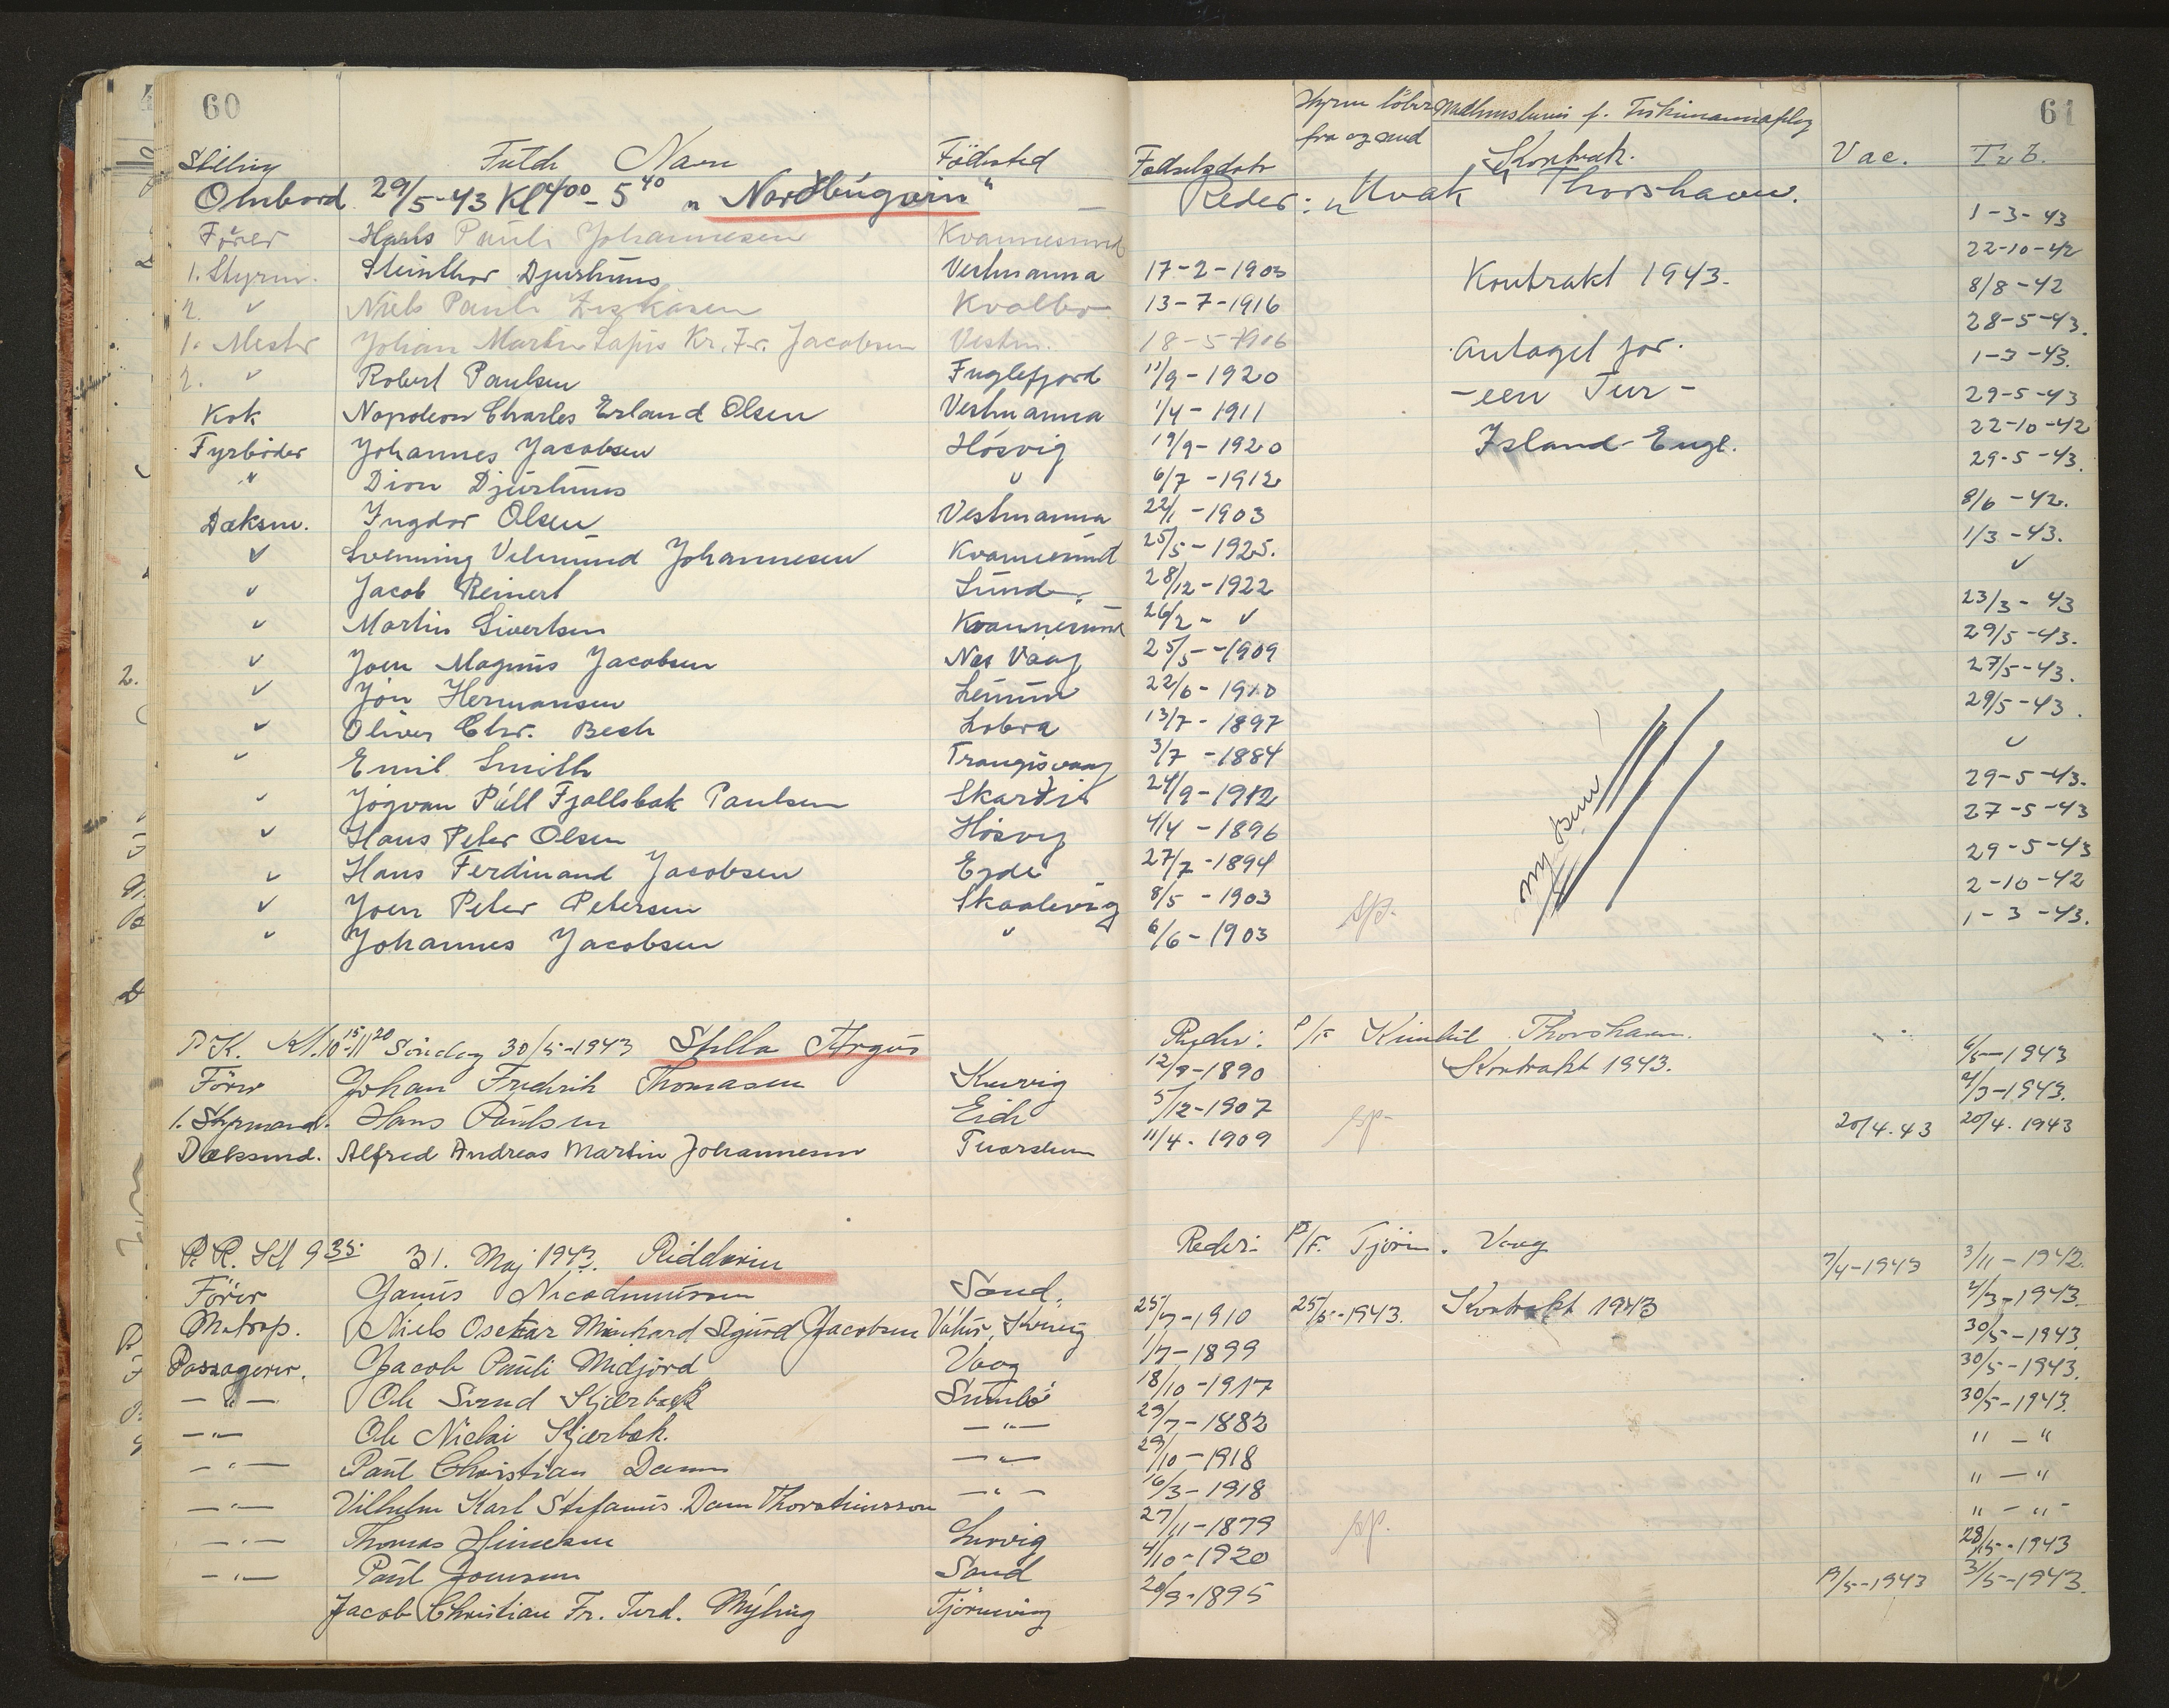 60
61
Stilling Fulde Navn Fødested Fødselsdato Hyren løber fra og med Kontrakt. Vac. T.b.
Ombord 29/5-43 Kl 4 00 - 5 40 „Nordbugvin“ Reder: „Kvak“ Thorshavn.
Förer Hans Pauli Johannesen Kvannesund 1-3-43
1. Styrm. Steinthor Djurhuus Vestmanna 17-2-1903 Kontrakt 1943. 22-10-42
2. " Niels Pauli Kvalbø 13-7-1916 8/8-42
1. Mester Johan Martin Kr. Fr. Jacobsen Vestm. 18-5-1906 Antaget for 28-5-43.
2. " Robert Paulsen Fuglefjord 11/9-1920 -een Tur- 1-3-43.
Kok Napoleon Charles Erland Olsen Vestmanna 1/4-1911 29-5-43
Fyrbøder Johannes Jacobsen Hósvig 19/9-1920 Island-Engl. 22-10-42
" Dion Djurhuus " 6/7-1912 29-5-43.
Dæksm. Ingdor Olsen Vestmanna 22/1-1903 8/6-42.
" Svenning Vilmund Johannesen Kvannesund 25/5-1925. 1/3-43.
" Jacob Reinert Sund 28/12-1922 "
" Martin Sivertsen Kvannesund 26/2- " 23/3-43
" Joen Magnus Jacobsen Nes Vaag 25/5-1909 29/5-43.
" Jón Hermansen 22/6-1910 27/5-43.
" Oliver Chr. Bech Lobra 13/7-1897 29/5-43.
" Emil Smith Trangisvaag 3/7-1884 "
" Jógvan Páll Fjallsbak Paulsen Skarði 24/9-1912 29-5-43.
" Hans Peter Olsen Hósvig 4/4-1896 27-5-43
" Hans Ferdinand Jacobsen Ejde 27/7-1894 29-5-43
" Joen Peter Petersen Skaalevig 8/5-1903 sp. 2-10-42
" Johannes Jacobsen " 6/6-1903 1-3-43.
P.K. Kl. 10 15-11 20 Søndag 30/5-1943 Stella Argus Reder: P/F Thorshavn.
Förer Johan Fredrik Thomasen 12/9-1890 Kontrakt 1943. 6/5-1943
1. Styrmand. Hans Paulsen Eide 5/12-1907 sp. 2/3-1943.
Dæksmd. Alfred Andreas Martin Johannesen 11/4.1909 20/4.43 20/4.1943
P.R. Kl 9 35. 31. Maj 1943. Riddarin Reder: P/F. Tjörn. Vaag
Förer Janus Nicodemussen Sand. 7/4-1943 3/11-1942.
Matrop. Niels Osckar Meinhard Sigurd Jacobsen 25/7-1910 25/5-1943. Kontrakt 1943 2/3-1943.
Passagerer. Jacob Pauli Midjord Vaag 1/7-1899 30/5-1943.
— " — Ole Svend Kjærbæk Sumbö 18/10-1917 30/5-1943.
— " — Ole Niclai Kjærbæk. — " — 29/7-1882 30/5-1943.
— " — Paul Christian Dam — " — 29/10-1918 " — "
— " — Vilhelm Karl Stefanus Dam Thorsteinsson — " — 16/3-1918 " — "
— " — Thomas Heinesen 27/11-1879 sp. " — "
— " — Paul Joensen Sand 4/10-1920 28/5-1943
Jacob Christian Fr. Ferd. Mýling Tjörnevig 20/9-1895 19/5-1943 31/5-1943.